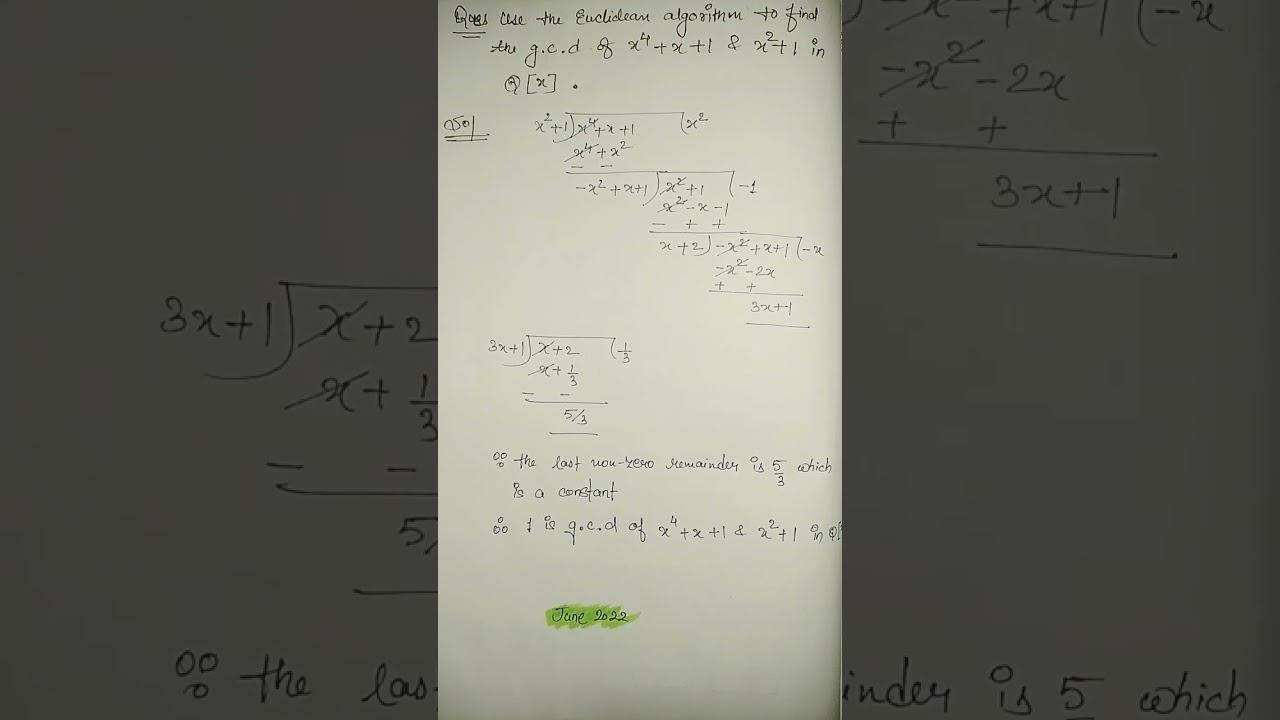 Ques Use the Euclidean algorithm to find
the g.c.d of x⁴+x+1 & x²+1 in
Q[x].
Sol
x²+1)x⁴+x+1(x²
x⁴+x²
− −
-x²+x+1)x²+1(-1
x²-x-1
− + +
x+2)-x²+x+1(-x
-x²-2x
+ +
3x+1
3x+1)x+2(1/3
x+1/3
− −
5/3
∵ the last non-zero remainder is 5/3 which
is a constant
∴ 1 is g.c.d of x⁴+x+1 & x²+1 in Q[
June 2022
3x+1)x+2
x+1/3
− −
5/
∵ the las
)-x²+x+1(-x
-x²-2x
+ +
3x+1
inder is 5 which